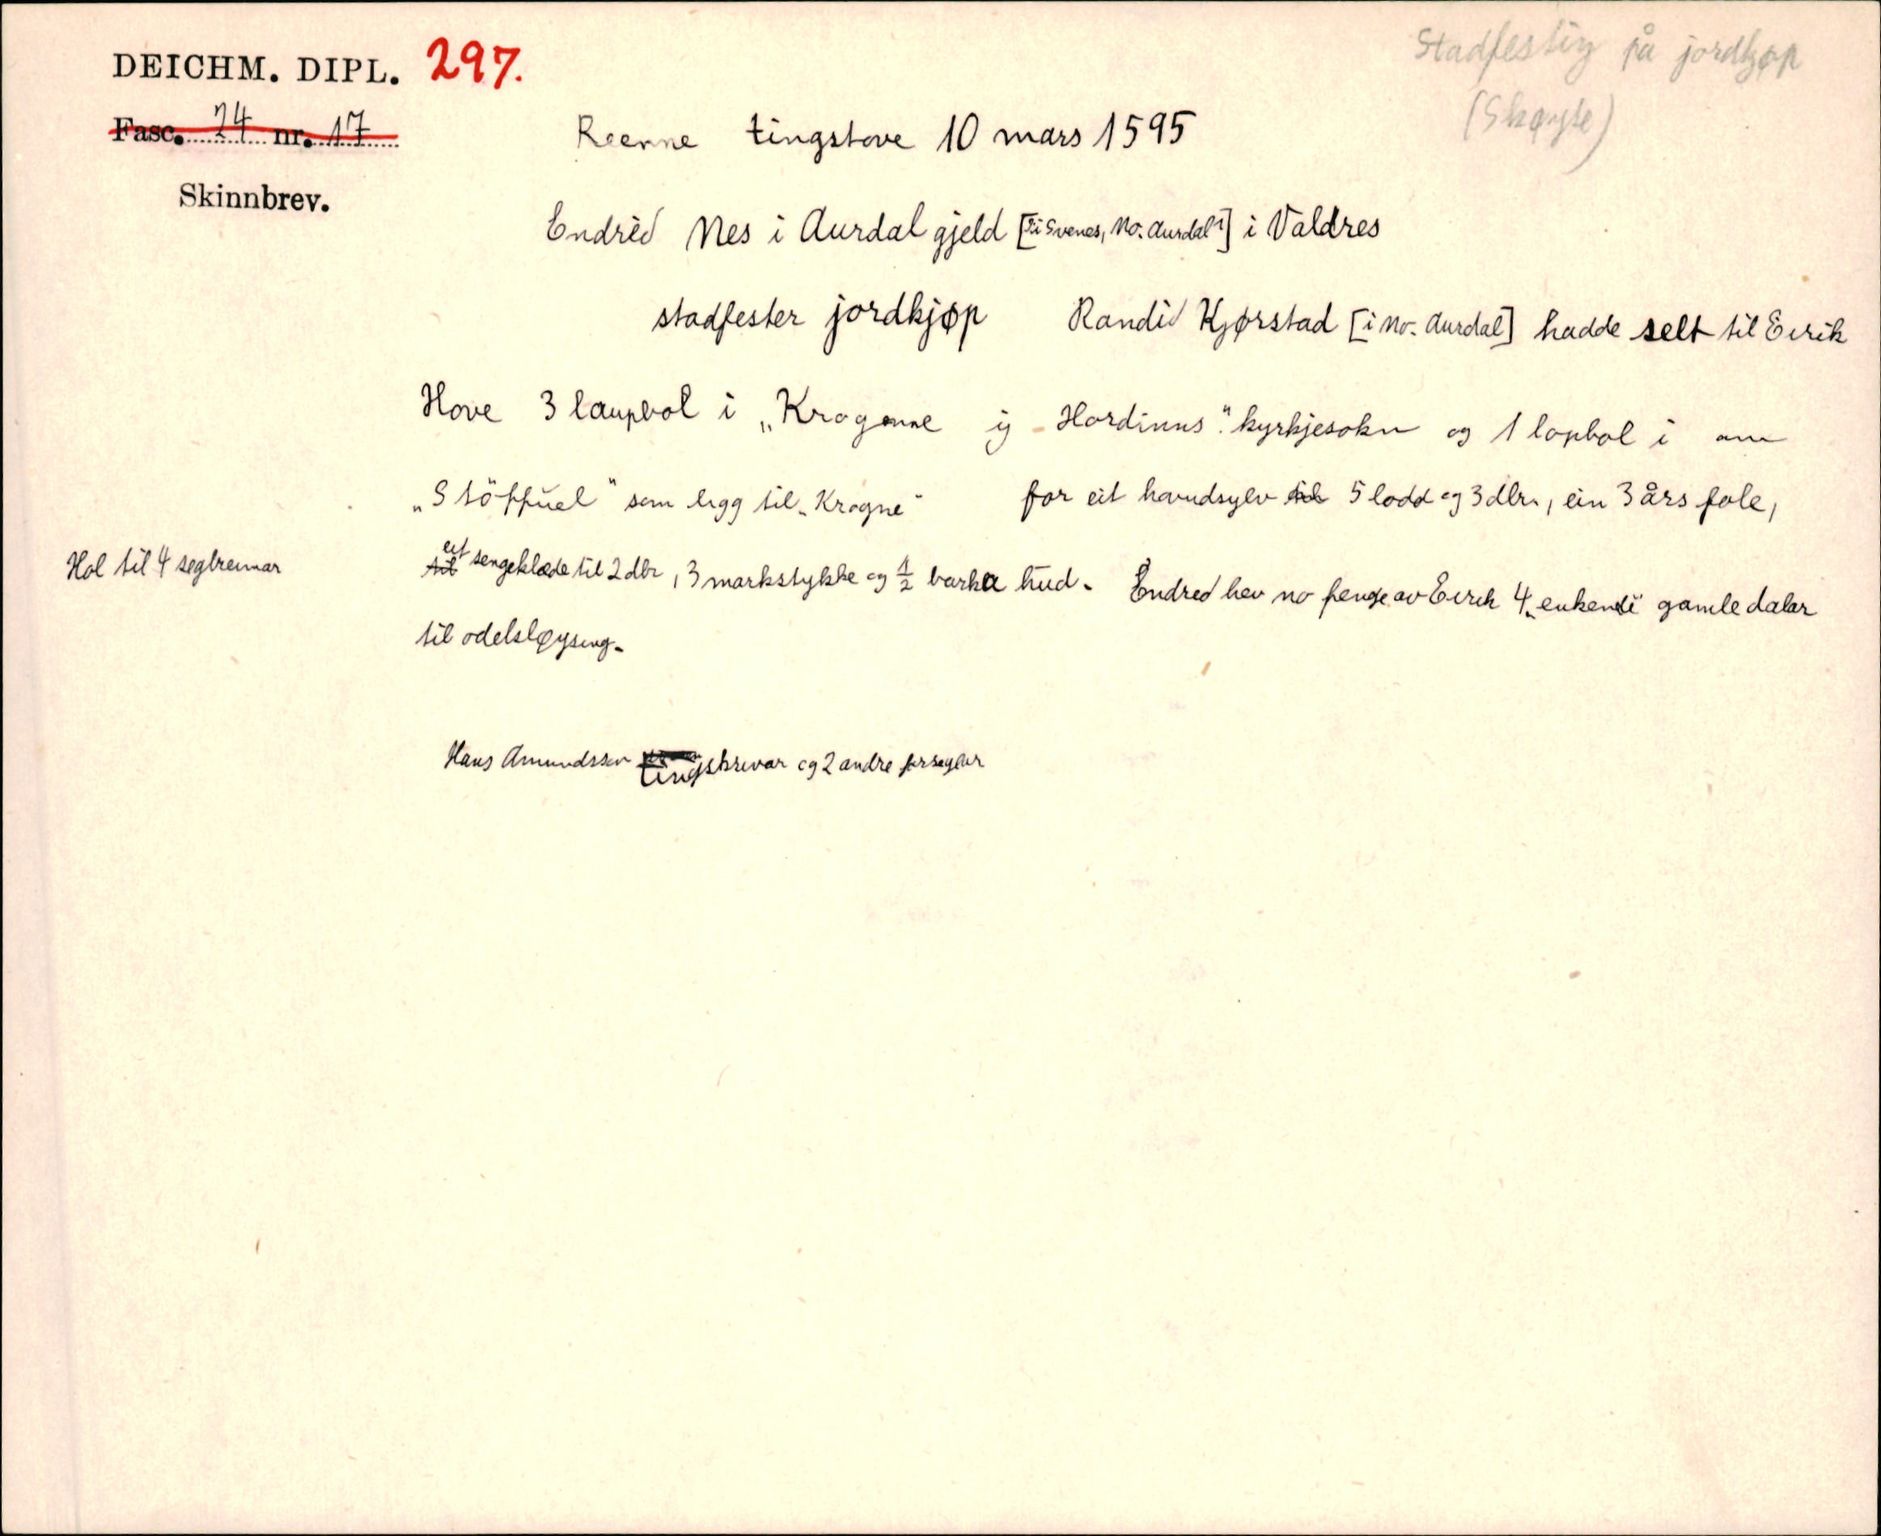 DEICHM. DIPL. 297.
Stadfesting på jordkjøp
(Skøyte)
Fasc. 24 nr. 17
Skinnbrev.
Reenne tingstove 10 mars 1595
Endrid Nes i Aurdal gjeld [? i Svenes, No. Aurdal ?] i Valdres
stadfester jordkjøp Randid Kjørstad [i No. Aurdal] hadde selt til Eirik
Hove 3 laupbol i „Krogenne ij Hordinns" kyrkjesokn og 1 lopbol i
„Stöffüel" som ligg til „Krogne" for eit havudsylv til 5 lodd og 3 dlr., ein 3 års fole,
Hol til 4 seglreimar
til eit sengeklæde til 2 dlr, 3 markstykke og 1/2 barka hud. Endred hev no fenge av Eirik 4 „enkende" gamle dalar
til odelsløysing.
Hans Amundssen tingskrivar og 2 andre forseglar